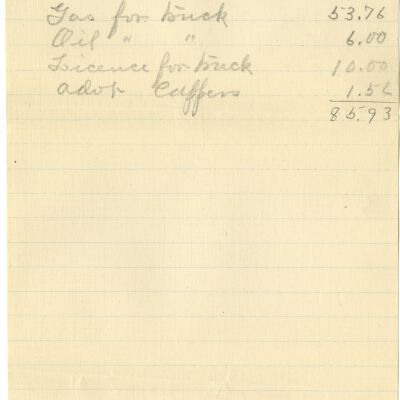 Gas for truck 53.76
Oil " " 6.00
Licence for truck 10.00
adot Cuffers 1.52
85.93